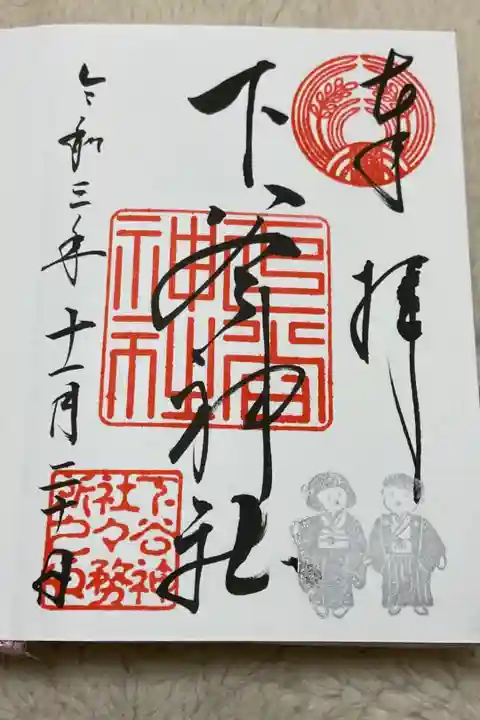 奉拝
下谷神社
令和三年十一月二十日
下谷神
社々務
所之印